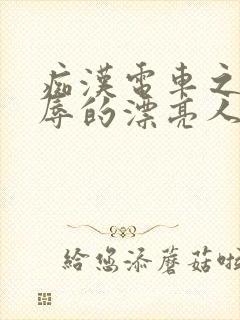 痴漢電車之
辱的漂亮人
給您添蘑菇啦